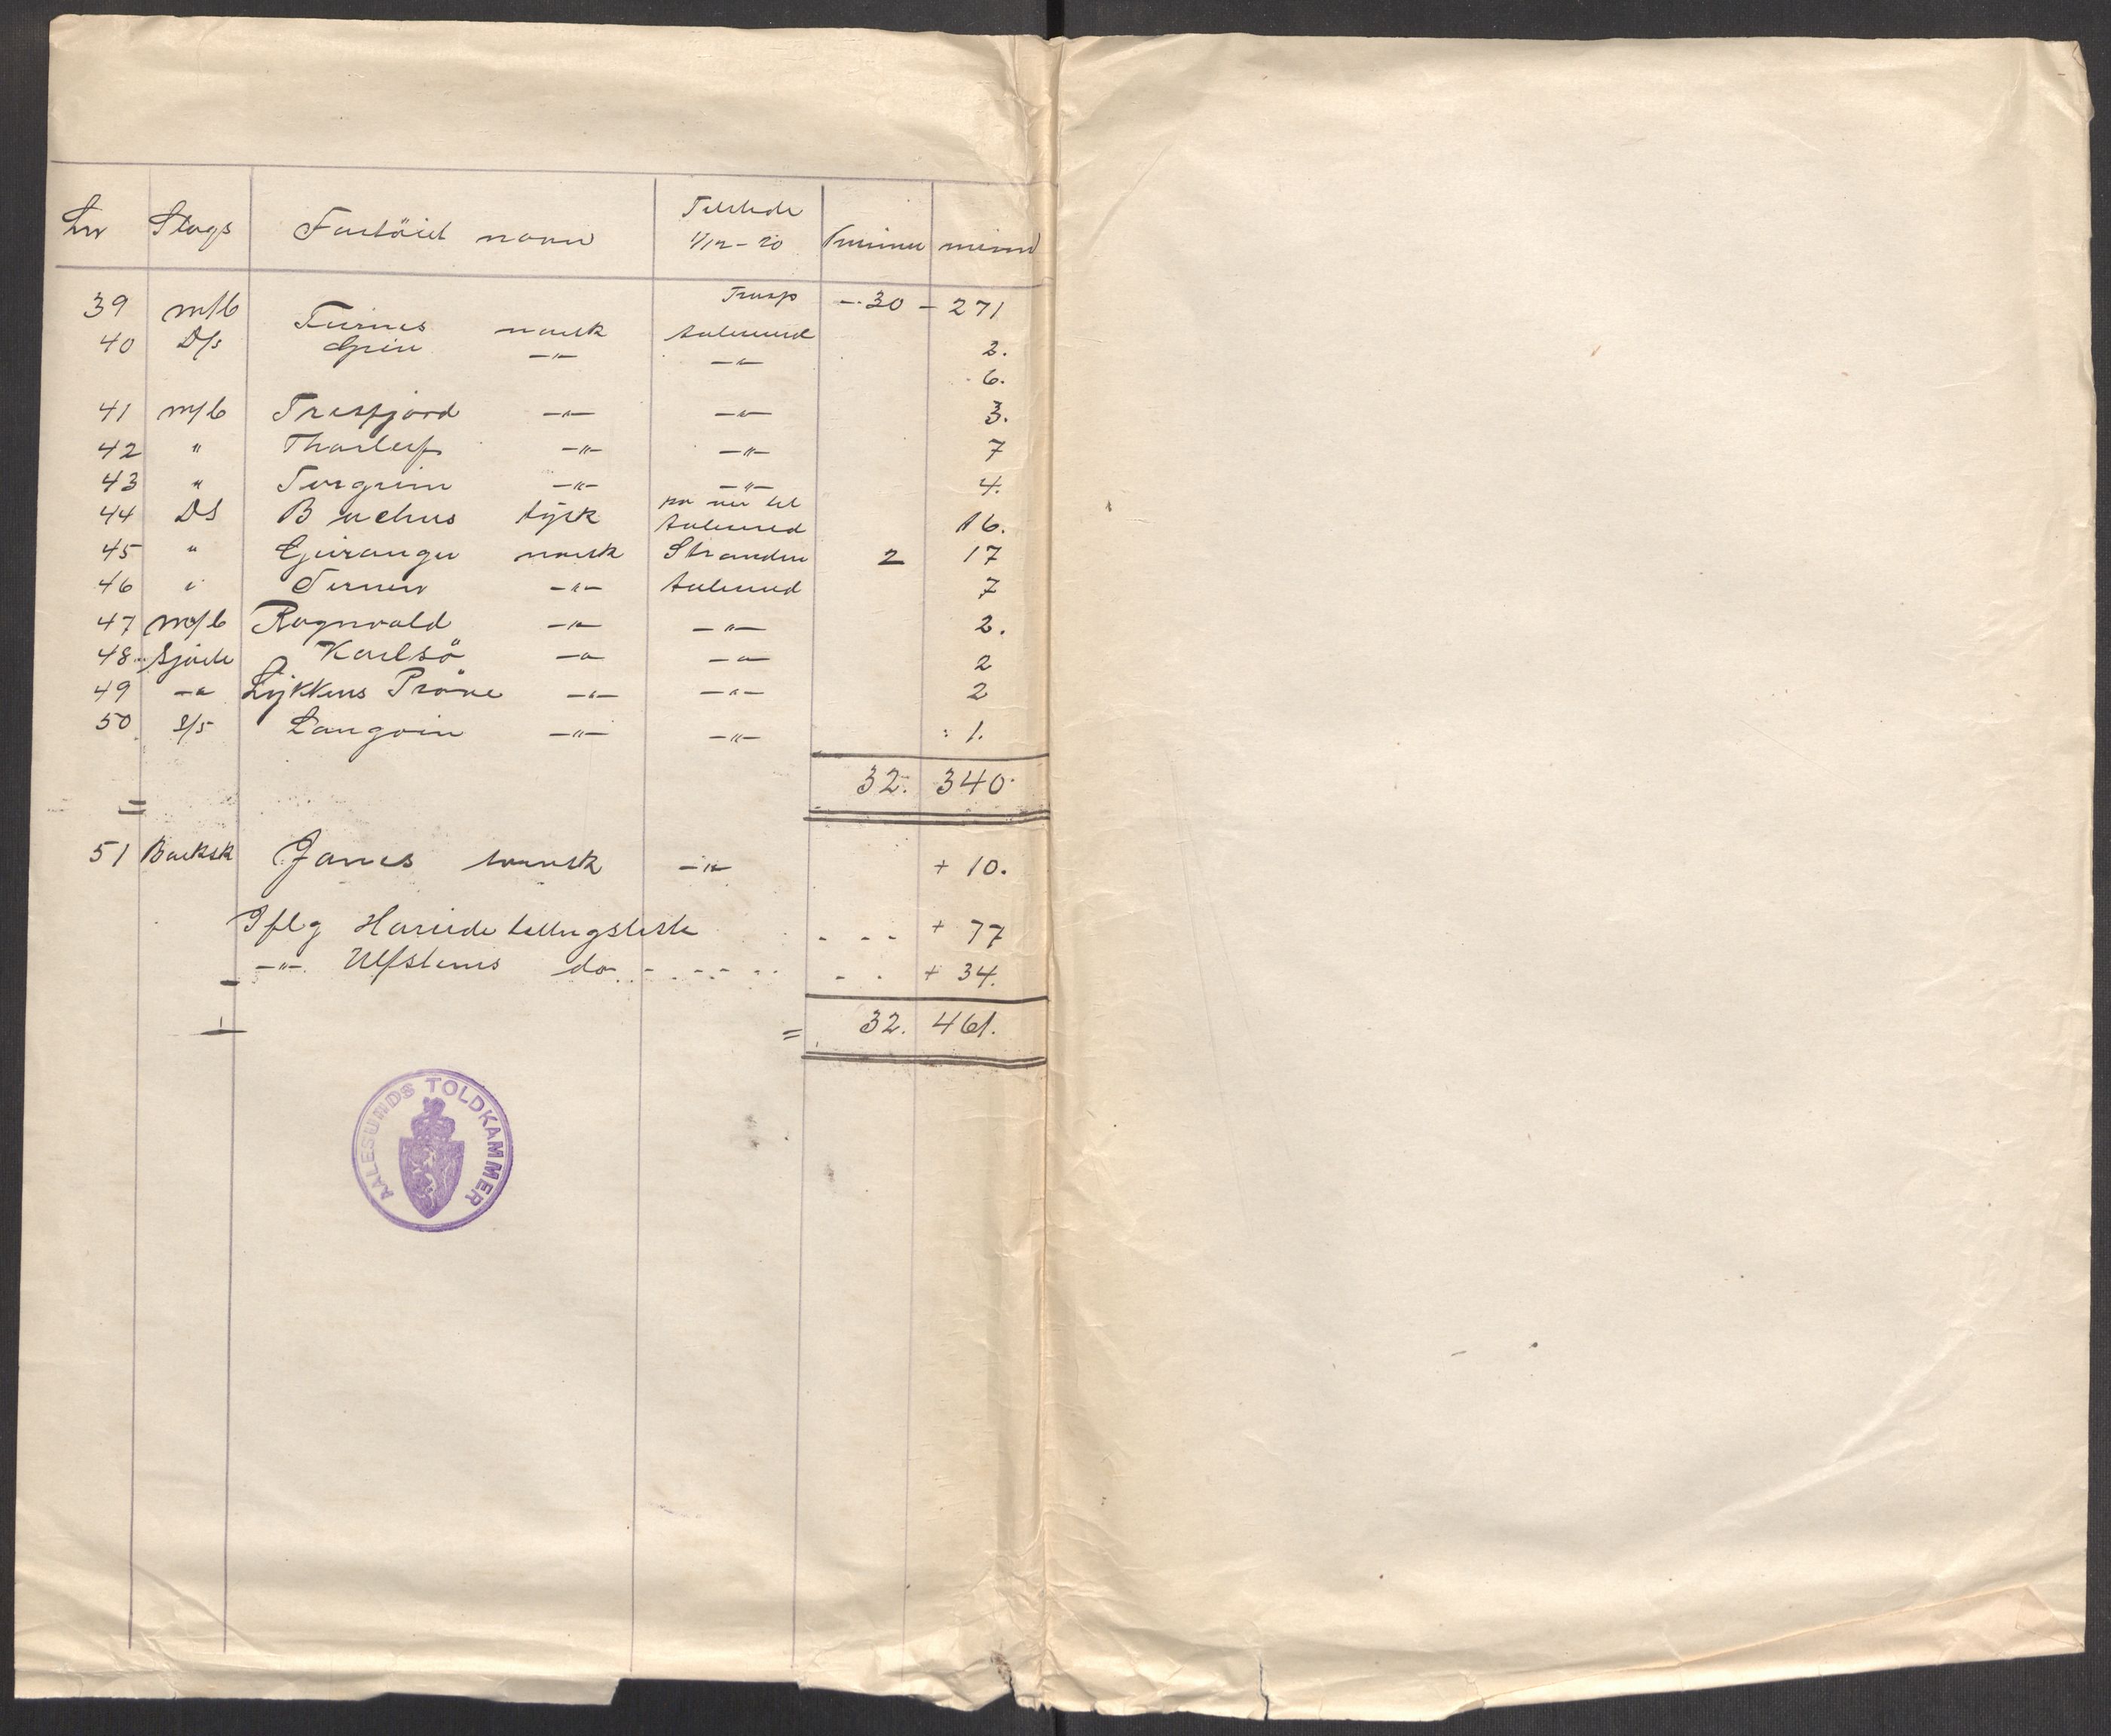 Lnr Slags Fartöiets navn Tilstede 1/12-20 Kvinner mænd
Transp - 30 - 271
39 m/b Turnes norsk Aalesund 2.
40 D/s Grei -"- -"- 6.
41 m/b Tresfjord -"- -"- 3.
42 " Thorleif -"- -"- 7
43 " Torgrim -"- -"- 4.
44 DS Bachus tysk paa vei til Aalesund 16.
45 " Geiranger norsk Stranden 2 17
46 " Ternen -"- Aalesund 7
47 m/b Ragnvald -"- -"- 2.
48 Sjöite Karlsö -"- -"- 2
49 -"- Lykkens Pröve -"- -"- 2
50 S/s Langvin -"- -"- 1.
32. 340.
51 Barksk James svensk -"- + 10.
Iflg Hareide tellingsliste + 77
-"- Ulfsteins do + 34.
= 32. 461.
AALESUNDS TOLDKAMMER